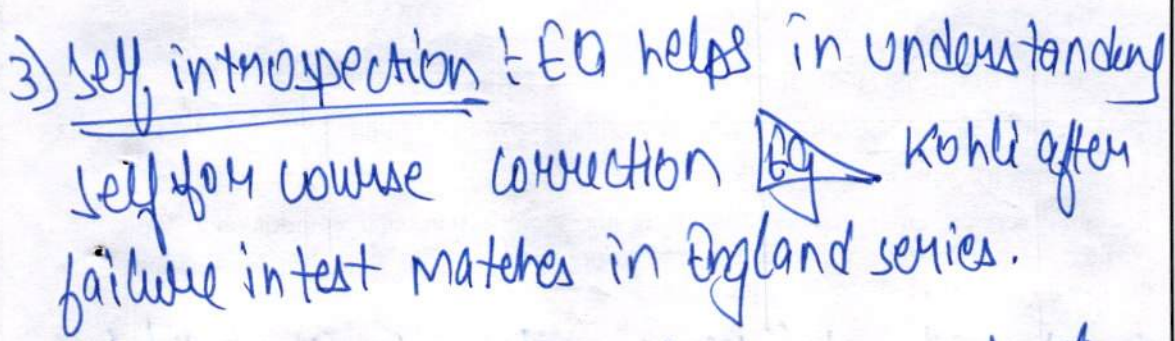 3) Self introspection : EQ helps in understanding
self for course correction Eg Kohli after
failure in test matches in England series.